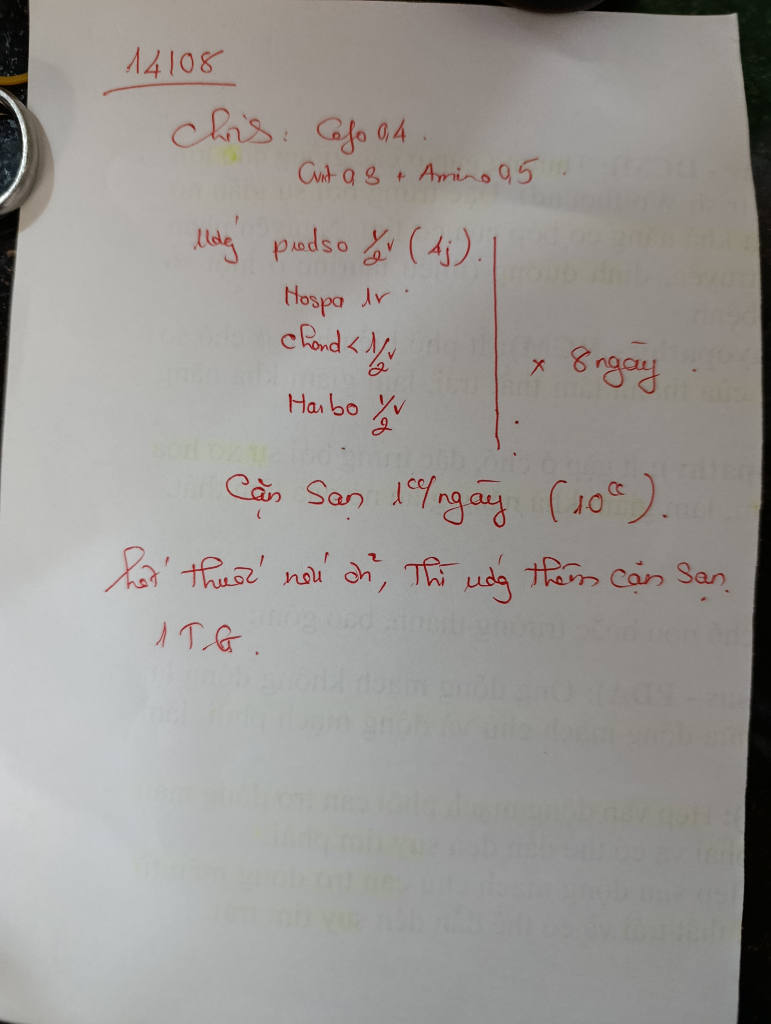 14/08
Chris: Cefo 0,4.
Cut 0,3 + Amino 0,5.
Uống predso 1/2v (4j).
Hospa 1v
chond < 1/2v
Haibo 1/2v
x 8 ngày.
Cặn Sạn 1cc/ngày (10cc).
hết thuốc nếú ổn, Thì uống thêm cặn Sạn.
1 T.G.